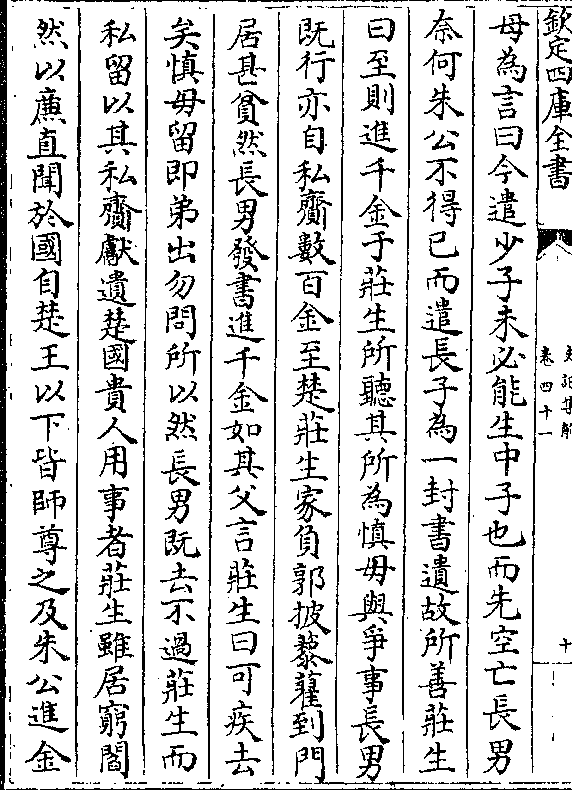 欽定四庫全書
史記集解
卷四十一
十
母為言曰今遣少子未必能生中子也而先空亡長男
奈何朱公不得已而遣長子為一封書遺故所善莊生
曰至則進千金于莊生所聽其所為慎毋與爭事長男
既行亦自私齎數百金至楚莊生家負郭披藜藋到門
居甚貧然長男發書進千金如其父言莊生曰可疾去
矣慎毋留即弟出勿問所以然長男既去不過莊生而
私留以其私齎獻遺楚國貴人用事者莊生雖居窮閻
然以廉直聞於國自楚王以下皆師尊之及朱公進金